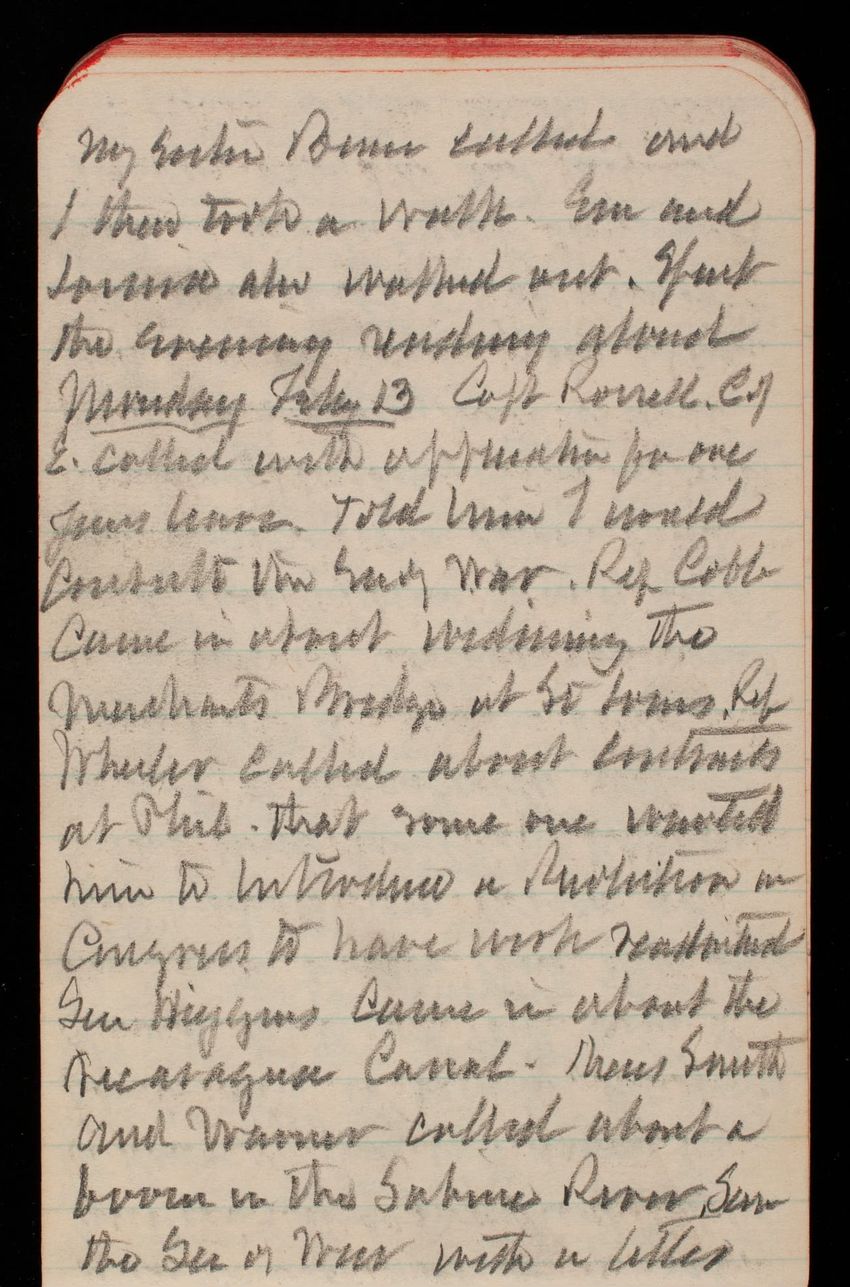 My Sister Bane called and
I then took a walk. Em and
Louisa also walked out. Spent
the evening reading aloud
Monday Feby 13 Capt Rossell. C of
E. called with application for one
years leave. Told him I would
Consult the Secy War. Rep Cobb
Came in about widening the
Merchants Bridge at St Louis. Rep
Wheeler called about Contracts
at Phil. that some one wanted
him to Introduce a Resolution in
Congress to have work readvertised
Gen Higgins Came in about the
Nicaragua Canal - Smith
and Warner called about a
boom in the Sabine River. Saw
the Sec of War with a letter